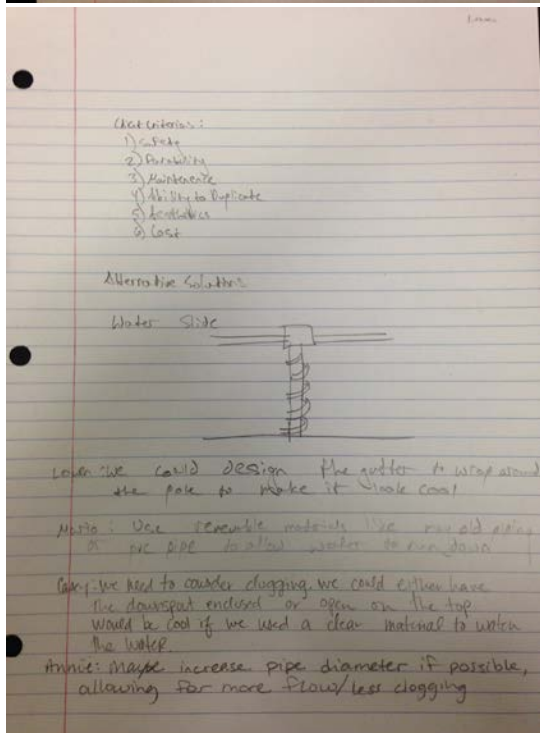 Criterias:
1) Safety
2) Durability
3) Maintenence
4) Ability to Duplicate
5) Aesthetics
6) Cost
Alternative Solutions
Water Slide
we could design the gutter to wrap around
the pole to make it look cool
Mario: Use renewable materials like old piping
or pvc pipe to allow water to run down
Casey: we need to consider clogging. we could either have
the downspout enclosed or open on the top
would be cool if we used a clear material to watch
the water.
Annie: Maybe increase pipe diameter if possible,
allowing for more flow/less clogging